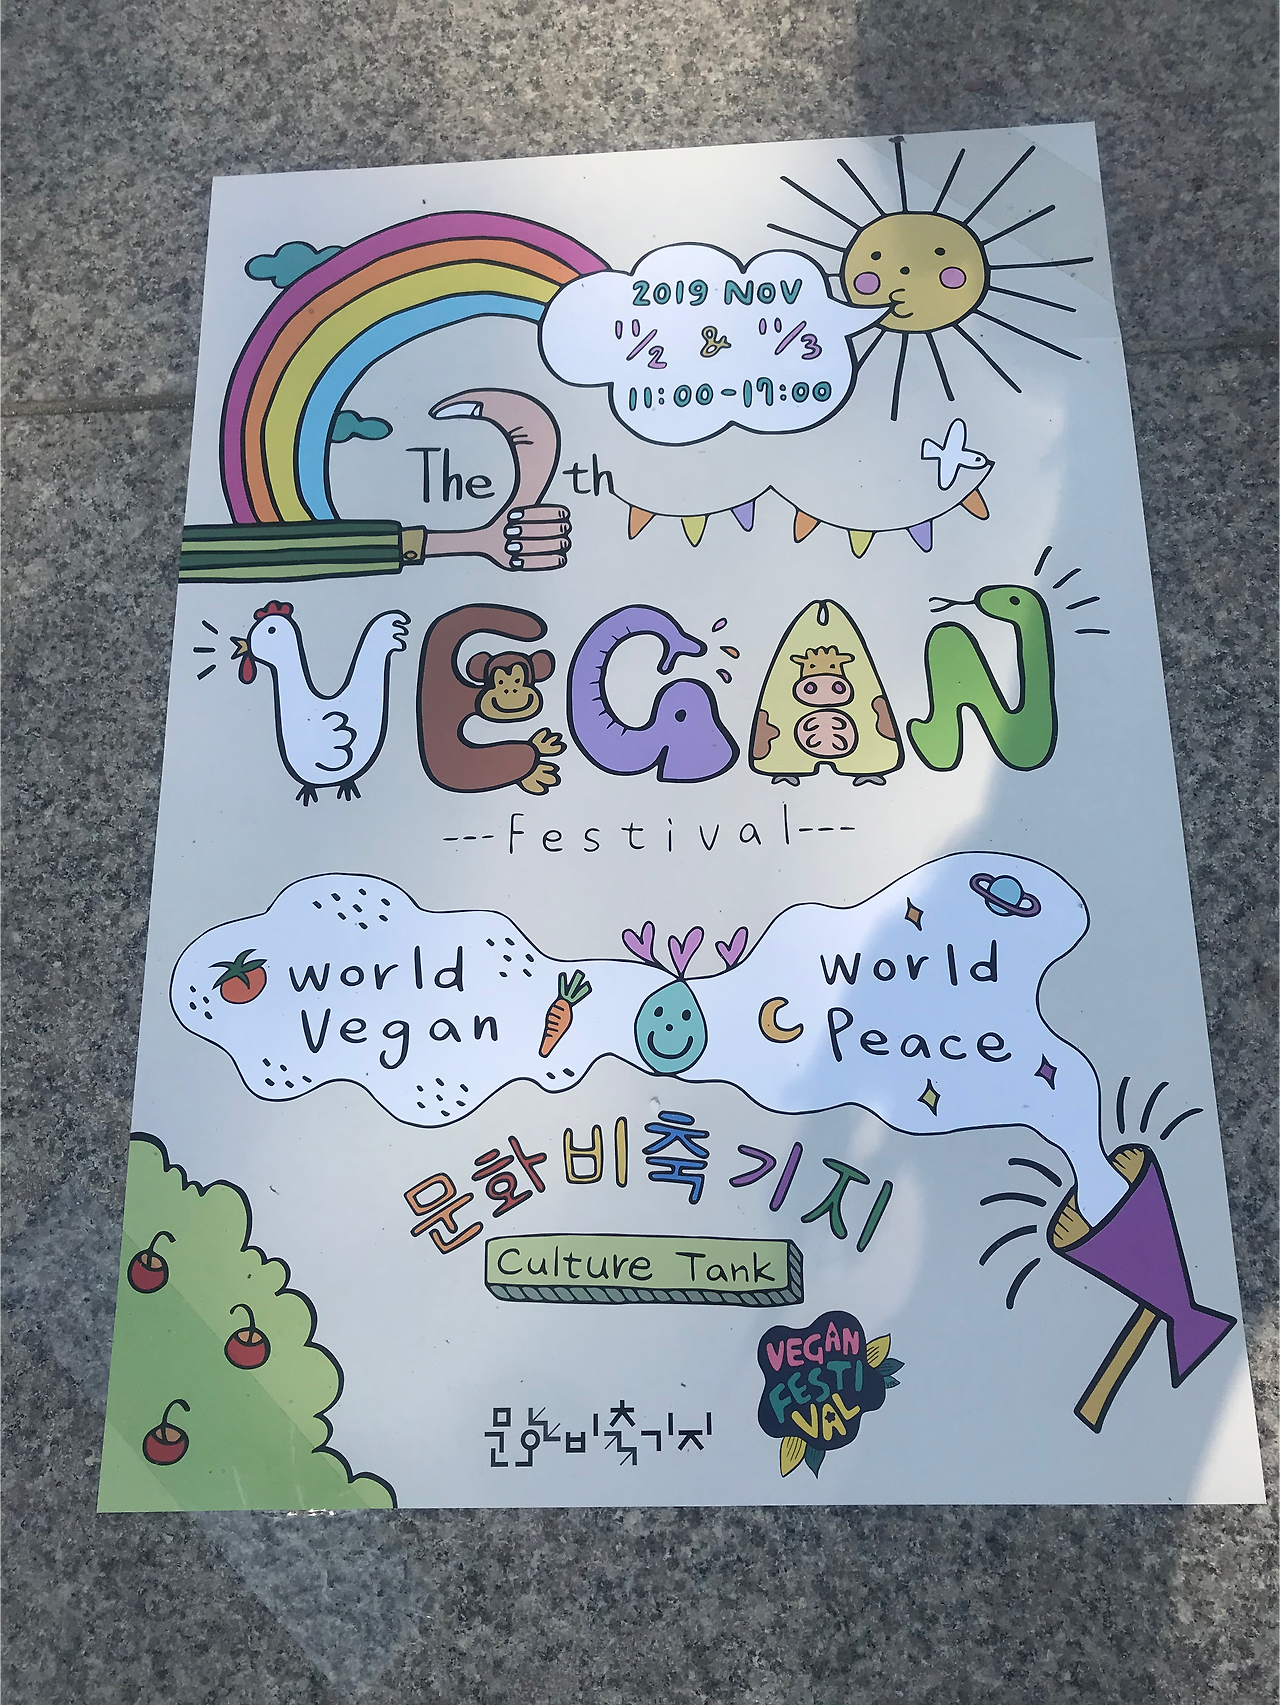 2019 NOV
11/2 & 11/3
11:00-17:00
The 7th
VEGAN
---festival---
world
Vegan
world
Peace
문화비축기지
Culture Tank
VEGAN
FESTI
VAL
문화비축기지